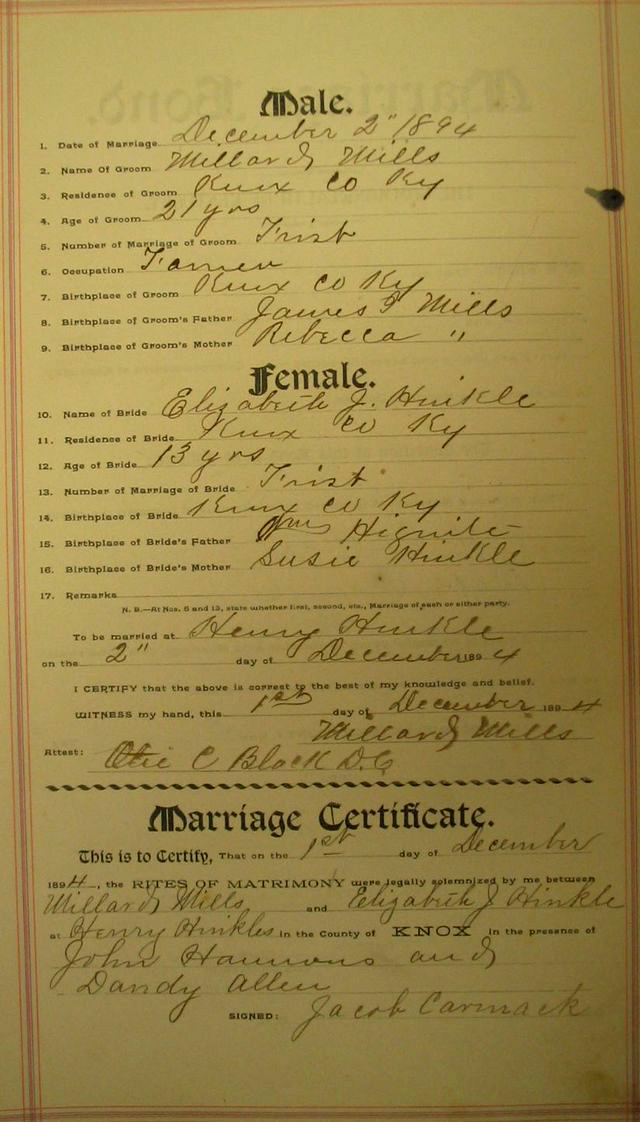 Male.
1. Date of Marriage December 2" 1894
2. Name Of Groom Millard Mills
3. Residence of Groom Knox Co Ky
4. Age of Groom 21 yrs
5. Number of Marriage of Groom First
6. Occupation Farmer
7. Birthplace of Groom Knox Co Ky
8. Birthplace of Groom's Father James F Mills
9. Birthplace of Groom's Mother Rebecca "
Female.
10. Name of Bride Elizabeth J. Hinkle
11. Residence of Bride Knox Co Ky
12. Age of Bride 13 yrs
13. Number of Marriage of Bride First
14. Birthplace of Bride Knox Co Ky
15. Birthplace of Bride's Father Wm Hignite
16. Birthplace of Bride's Mother Susie Hinkle
17. Remarks
N. B.—At Nos. 5 and 13, state whether first, second, etc., Marriage of each or either party.
To be married at Henry Hinkle
on the 2" day of December 1894
I CERTIFY that the above is correct to the best of my knowledge and belief.
WITNESS my hand, this 1st day of December 1894
Millard Mills
Attest: C Black D.C
Marriage Certificate.
This is to Certify, That on the 1st day of December
1894, the RITES OF MATRIMONY were legally solemnized by me between
Millard Mills and Elizabeth J Hinkle
at Henry Hinkles in the County of KNOX in the presence of
John Hammons and
Dandy Allen
SIGNED: Jacob Carmack